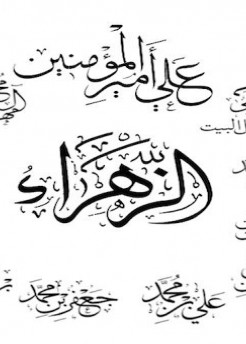 علي أمير المؤمنين
البيت
الزهراء
علي بن محمد
جعفر بن محمد